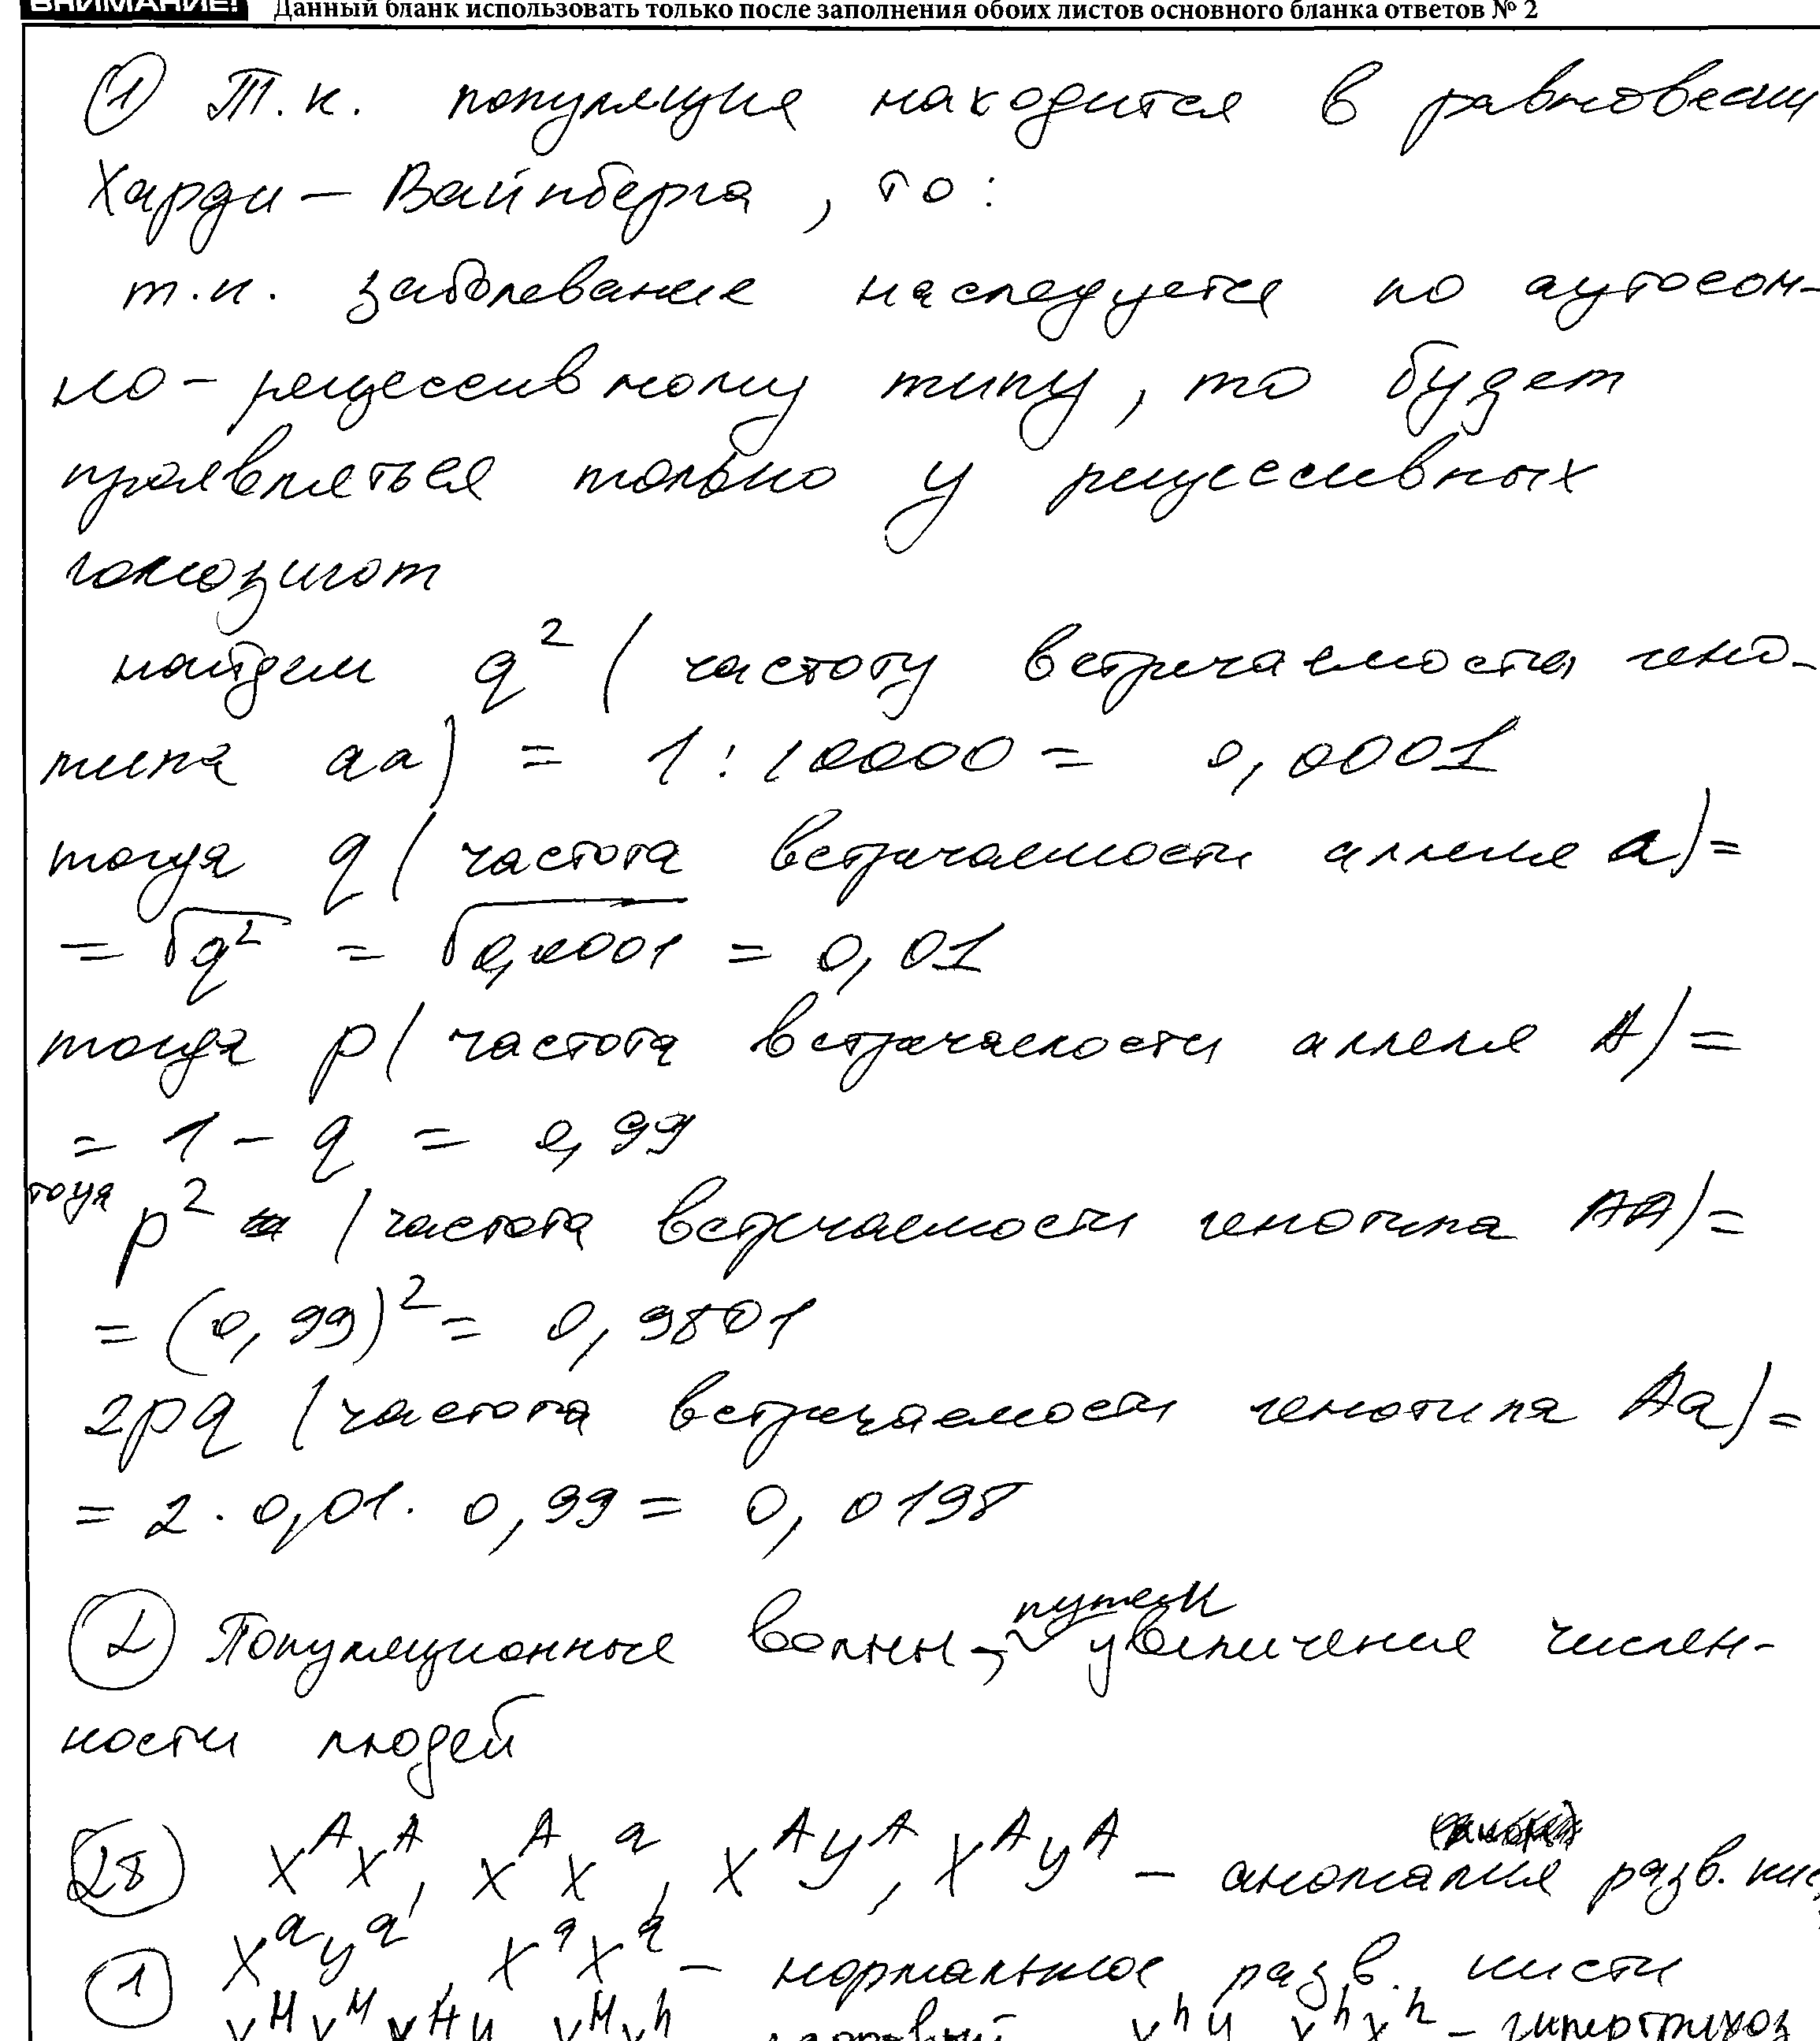 ВНИМАНИЕ! Данный бланк использовать только после заполнения обоих листов основного бланка ответов № 2
① Т.к. популяция находится в равновесии
Харди – Вайнберга, то:
т.к. заболевание наследуется по аутосом-
но-рецессивному типу, то будет
проявляться только у рецессивных
гомозигот
найдем q² (частоту встречаемости гено-
типа aa) = 1 : 10000 = 0,0001
тогда q (частота встречаемости аллеля a) =
= √q² = √0,0001 = 0,01
тогда p (частота встречаемости аллеля A) =
= 1 – q = 0,99
тогда p² (частота встречаемости генотипа AA) =
= (0,99)² = 0,9801
2pq (частота встречаемости генотипа Aa) =
= 2 · 0,01 · 0,99 = 0,0198
② Популяционные волны, путем увеличения числен-
ности людей
㉘ XᴬXᴬ, XᴬXᵃ, XᴬYᴬ, XᴬYᴬ – аномалия разв. кис
① XᵃYᵃ, XᵃXᵃ – нормальное разв. кисти
XᴴXᴴ XᴴY XᴴXʰ здоровый XʰY XʰXʰ – гипертрихоз